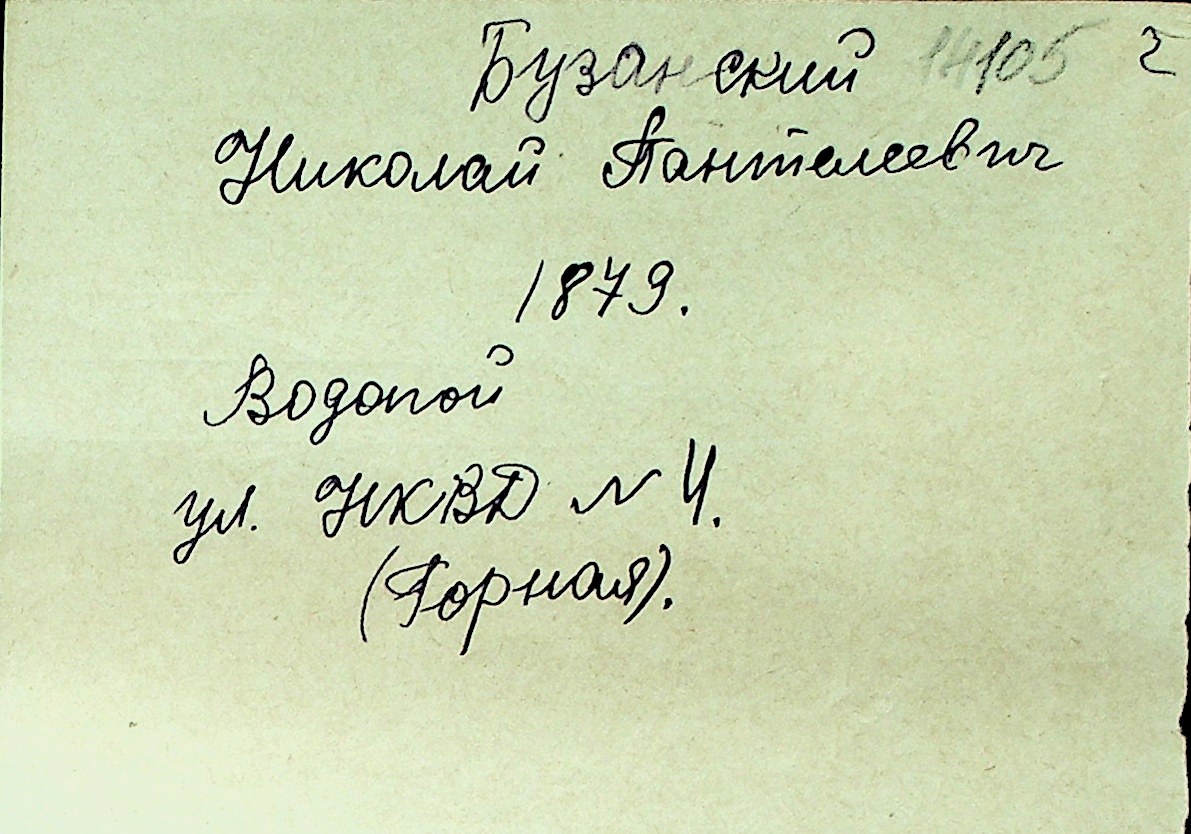 Бузанский 14105 2
Николай Пантелеевич
1879.
Водопой
ул. НКВД N 4.
(Горная).